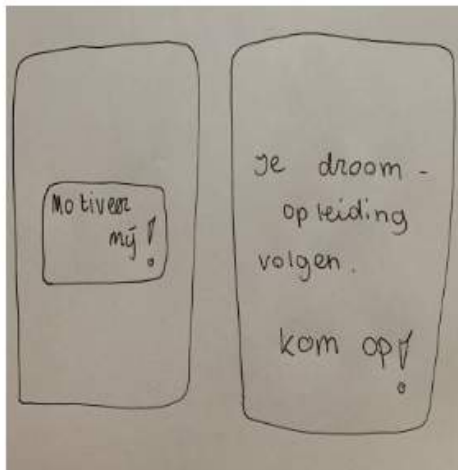 Motiveer
mij!
Je droom-
opleiding
volgen.
kom op!